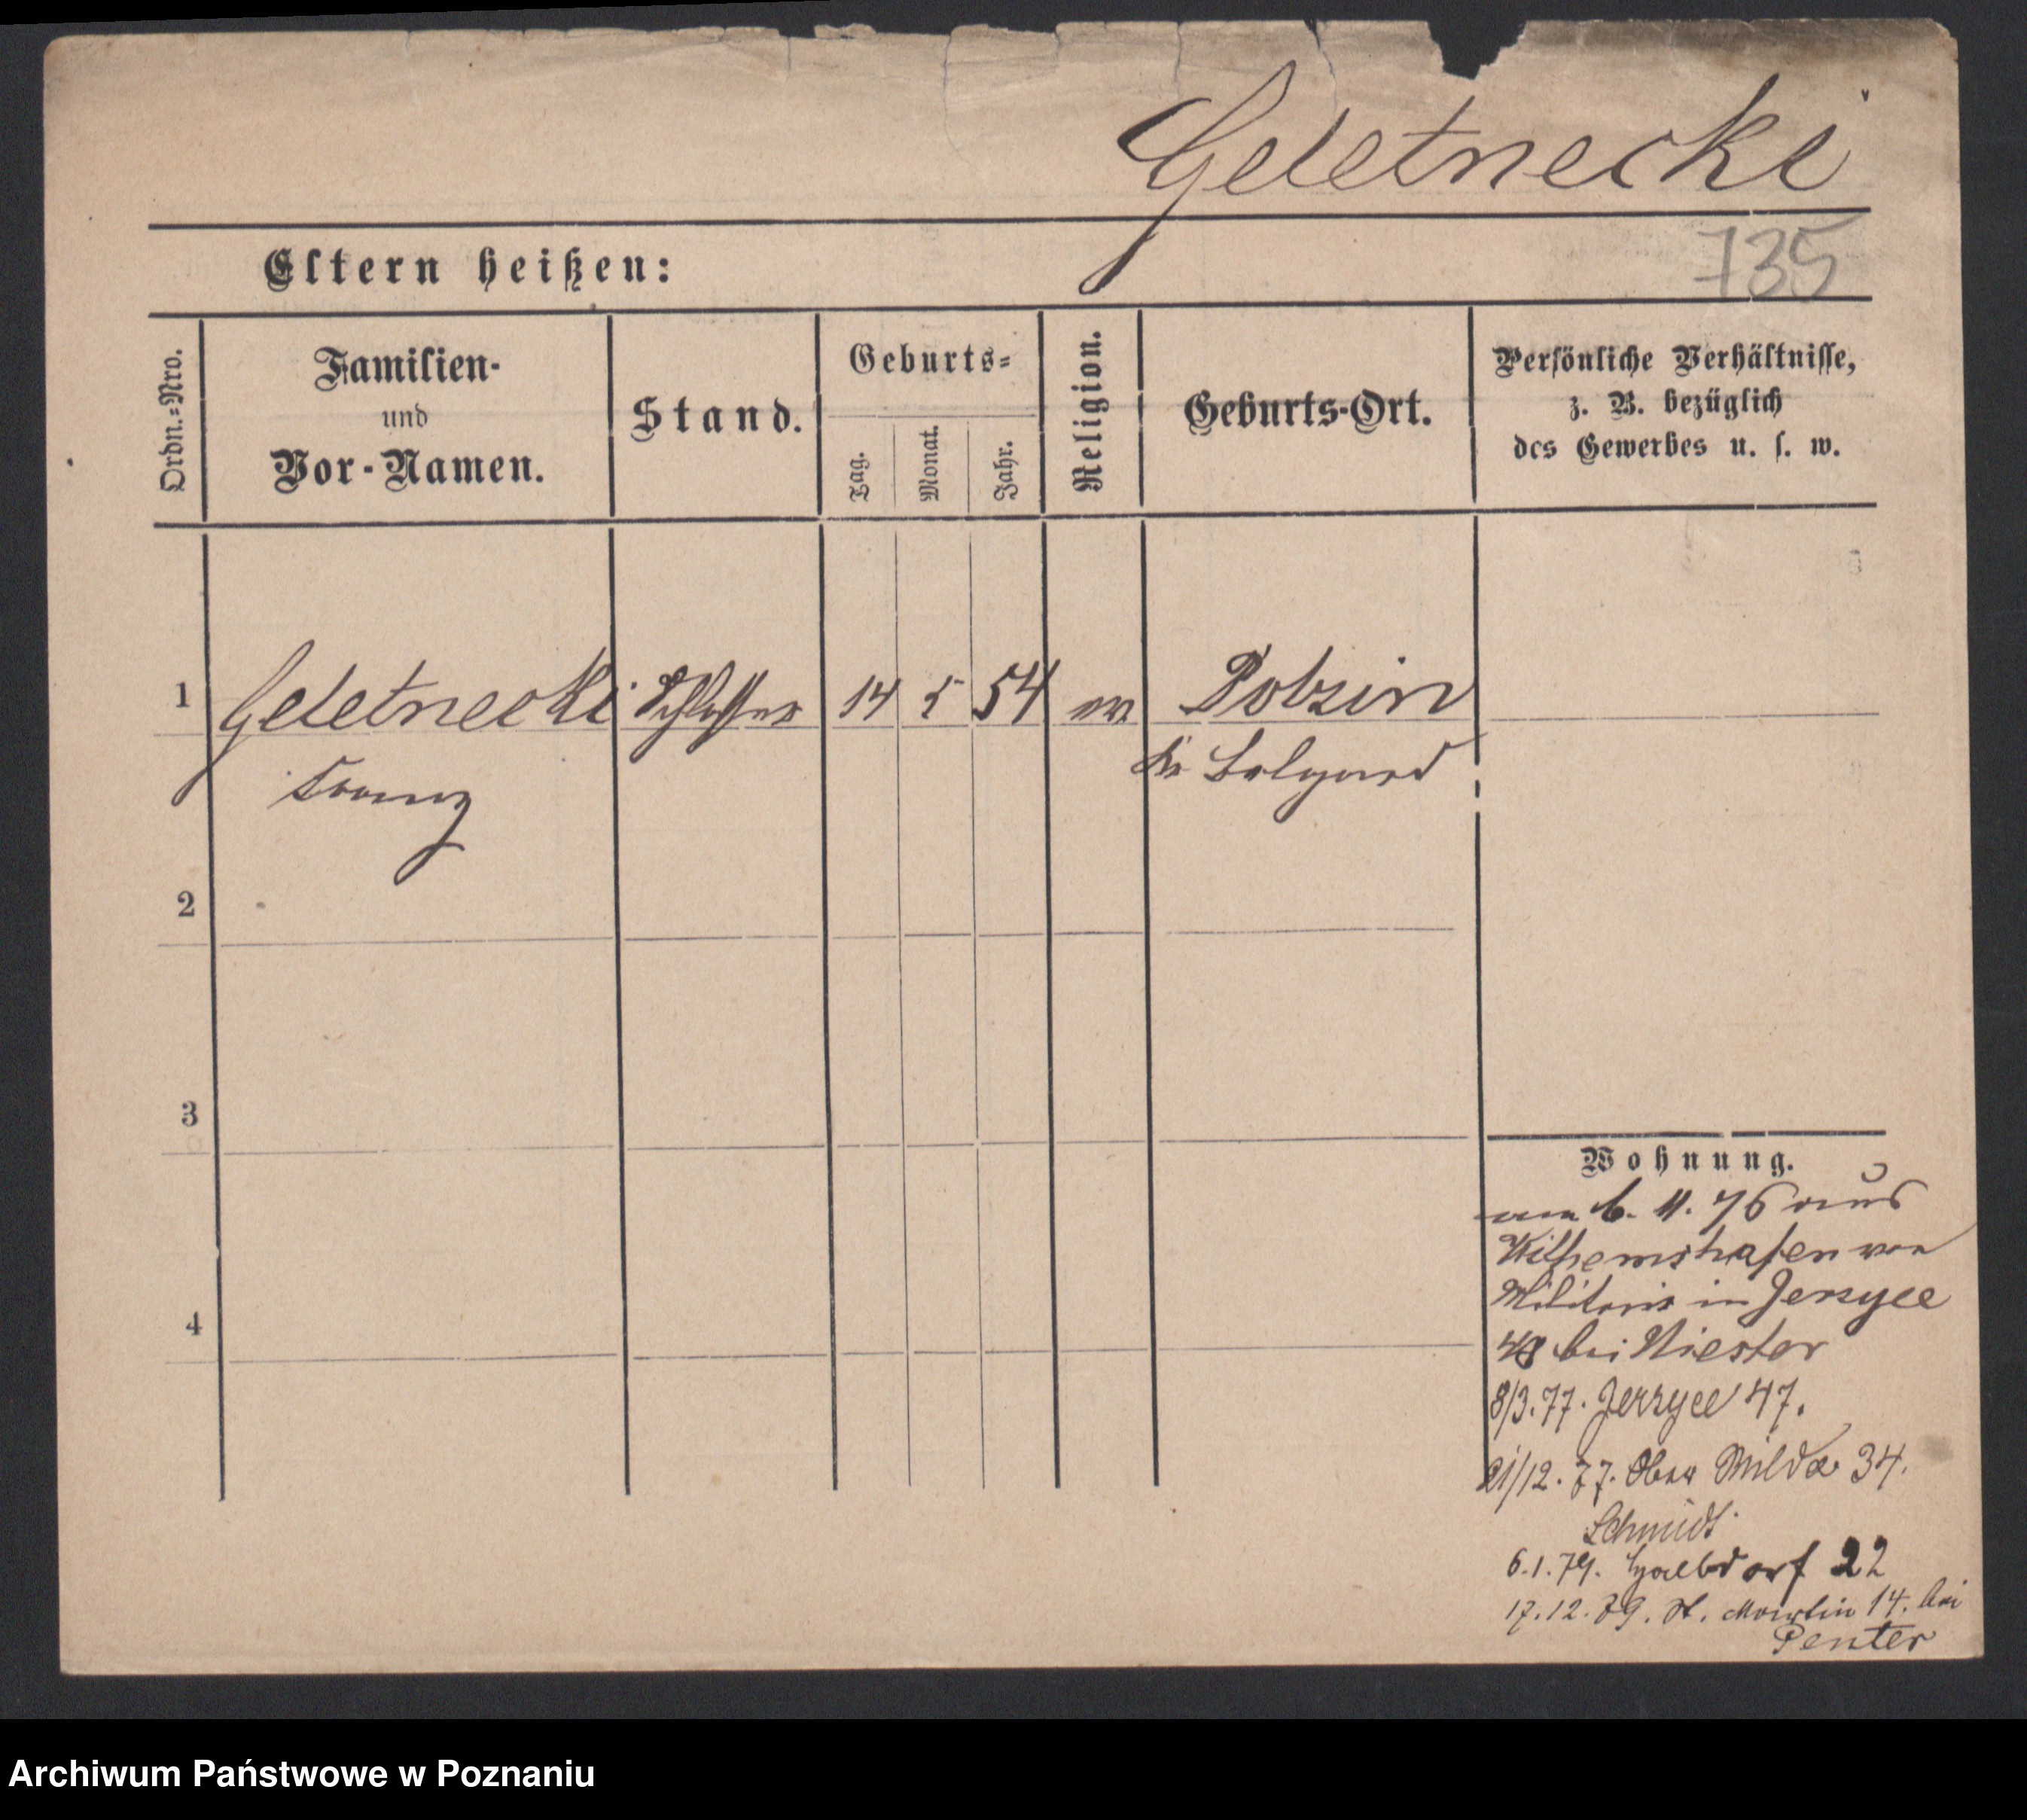 Geletnecki
735
Eltern heißen:
Ordn.=Nro.
Familien-
und
Vor-Namen.
Stand.
Geburts=
Tag.
Monat.
Jahr.
Religion.
Geburts-Ort.
Persönliche Verhältnisse,
z. B. bezüglich
des Gewerbes u. s. w.
1 Geletnecki Schlosser 14 5 54 ev Polzin
Franz Kr Belgard
2
3
4
Wohnung.
am 6. 11. 76 aus
Wilhemshafen von
Militair in Jersyce
48 bei Niester
8/3. 77. Jerzyce 47.
21/12. 77. Ober Wilda 34.
Schmidt
6.1.79. Halbdorf 22
17.12.79. St. Martin 14. bei
Penter
Archiwum Państwowe w Poznaniu